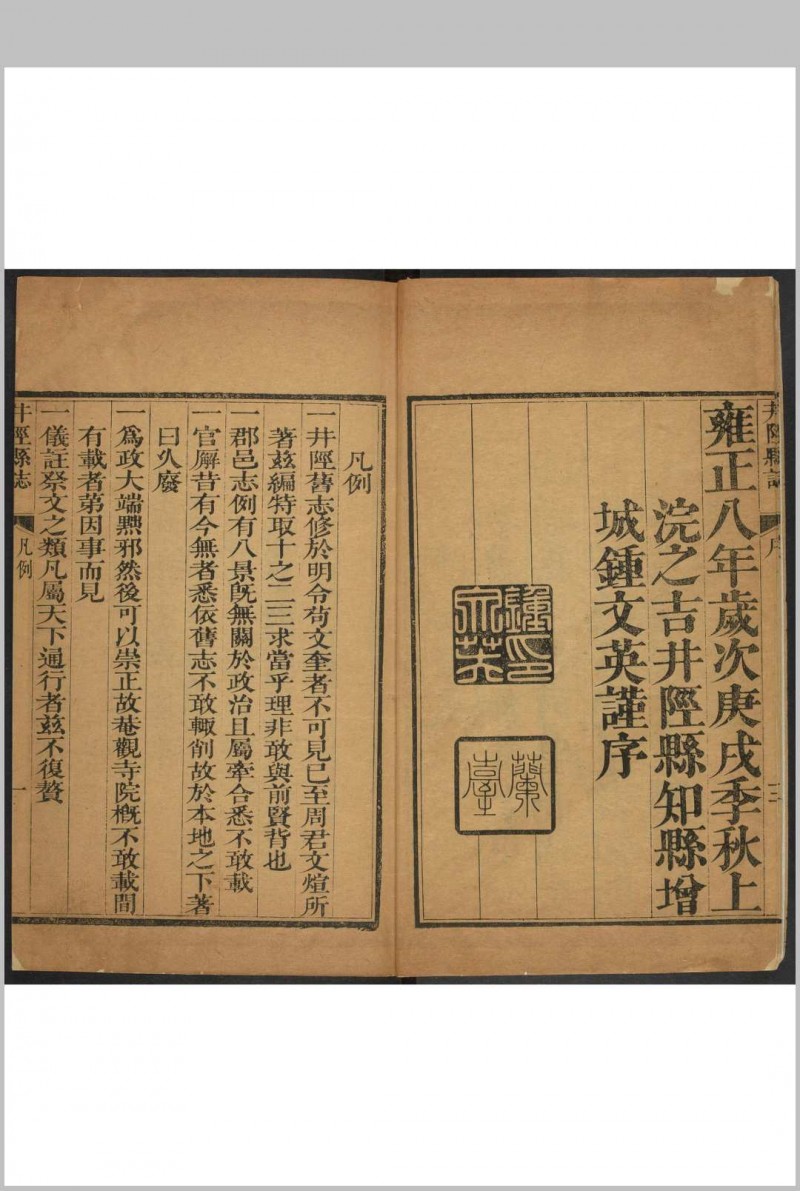 井陘縣誌
序
三
雍正八年歲次庚戌季秋上
浣之吉井陘縣知縣增
城鍾文英謹序
鍾印文英
蘭臺
凡例
一井陘舊志修於明令苟文奎者不可見已至周君文煊所
著茲編特取十之二三求當乎理非敢與前賢背也
一郡邑志例有八景旣無關於政治且屬牽合悉不敢載
一官廨昔有今無者悉依舊志不敢輙削故於本地之下著
曰久廢
一爲政大端黜邪然後可以崇正故菴觀寺院槪不敢載間
有載者第因事而見
一儀註祭文之類凡屬天下通行者茲不復贅
井陘縣志
凡例
一